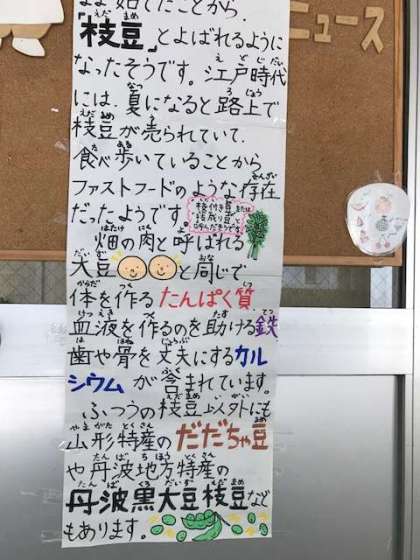 ニュース
ままゆでたことから、
「枝豆」とよばれるように
なったそうです。江戸時代
には、夏になると路上で
枝豆が売られていて、
食べ歩いていることから
ファストフードのような存在
だったようです。
枝付き豆、または
枝成り豆と
畑の肉と呼ばれる
大豆と同じで
体を作るたんぱく質
血液を作るのを助ける鉄
歯や骨を丈夫にするカル
シウムが含まれています。
ふつうの枝豆以外にも
山形特産のだだちゃ豆
や丹波地方特産の
丹波黒大豆枝豆など
もあります。